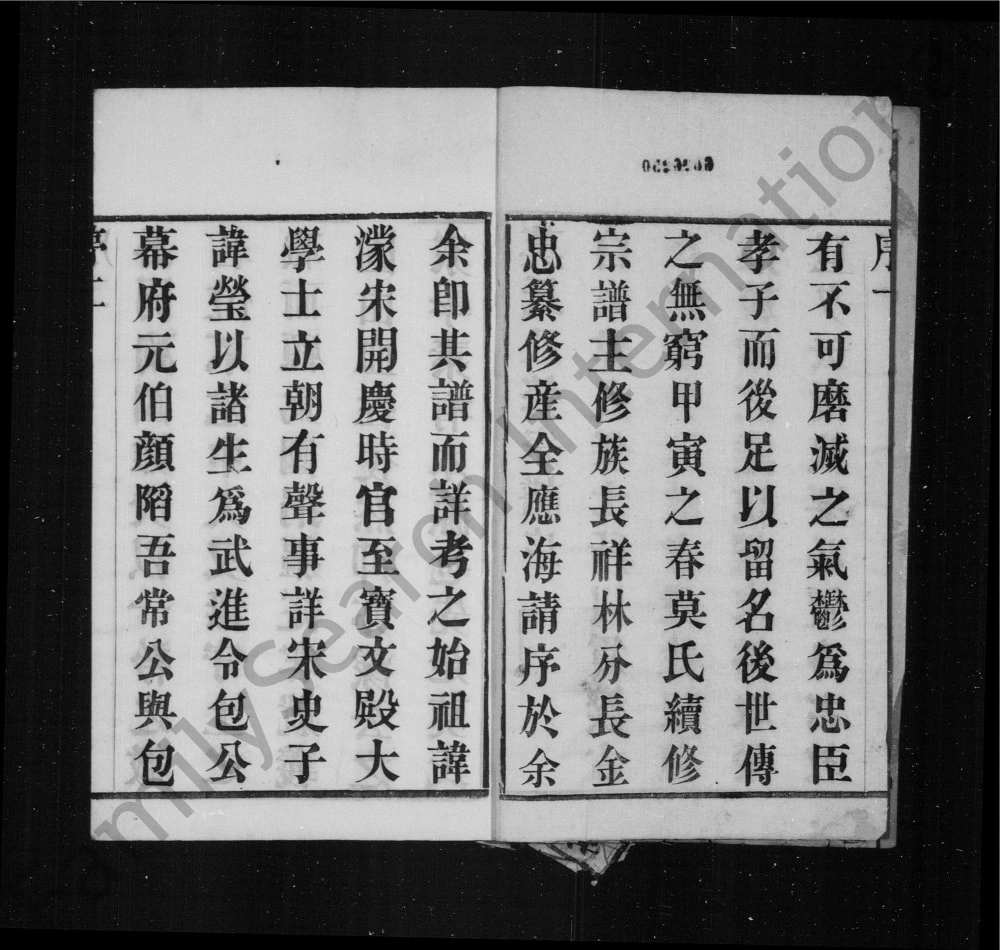 序一
有不可磨滅之氣鬱爲忠臣
孝子而後足以留名後世傳
之無窮甲寅之春莫氏續修
宗譜主修族長祥林分長金
忠纂修産全應海請序於余
余卽其譜而詳考之始祖諱
濛宋開慶時官至寶文殿大
學士立朝有聲事詳宋史子
諱瑩以諸生爲武進令包公
幕府元伯顔䧟吾常公與包
序二
FamilySearch International